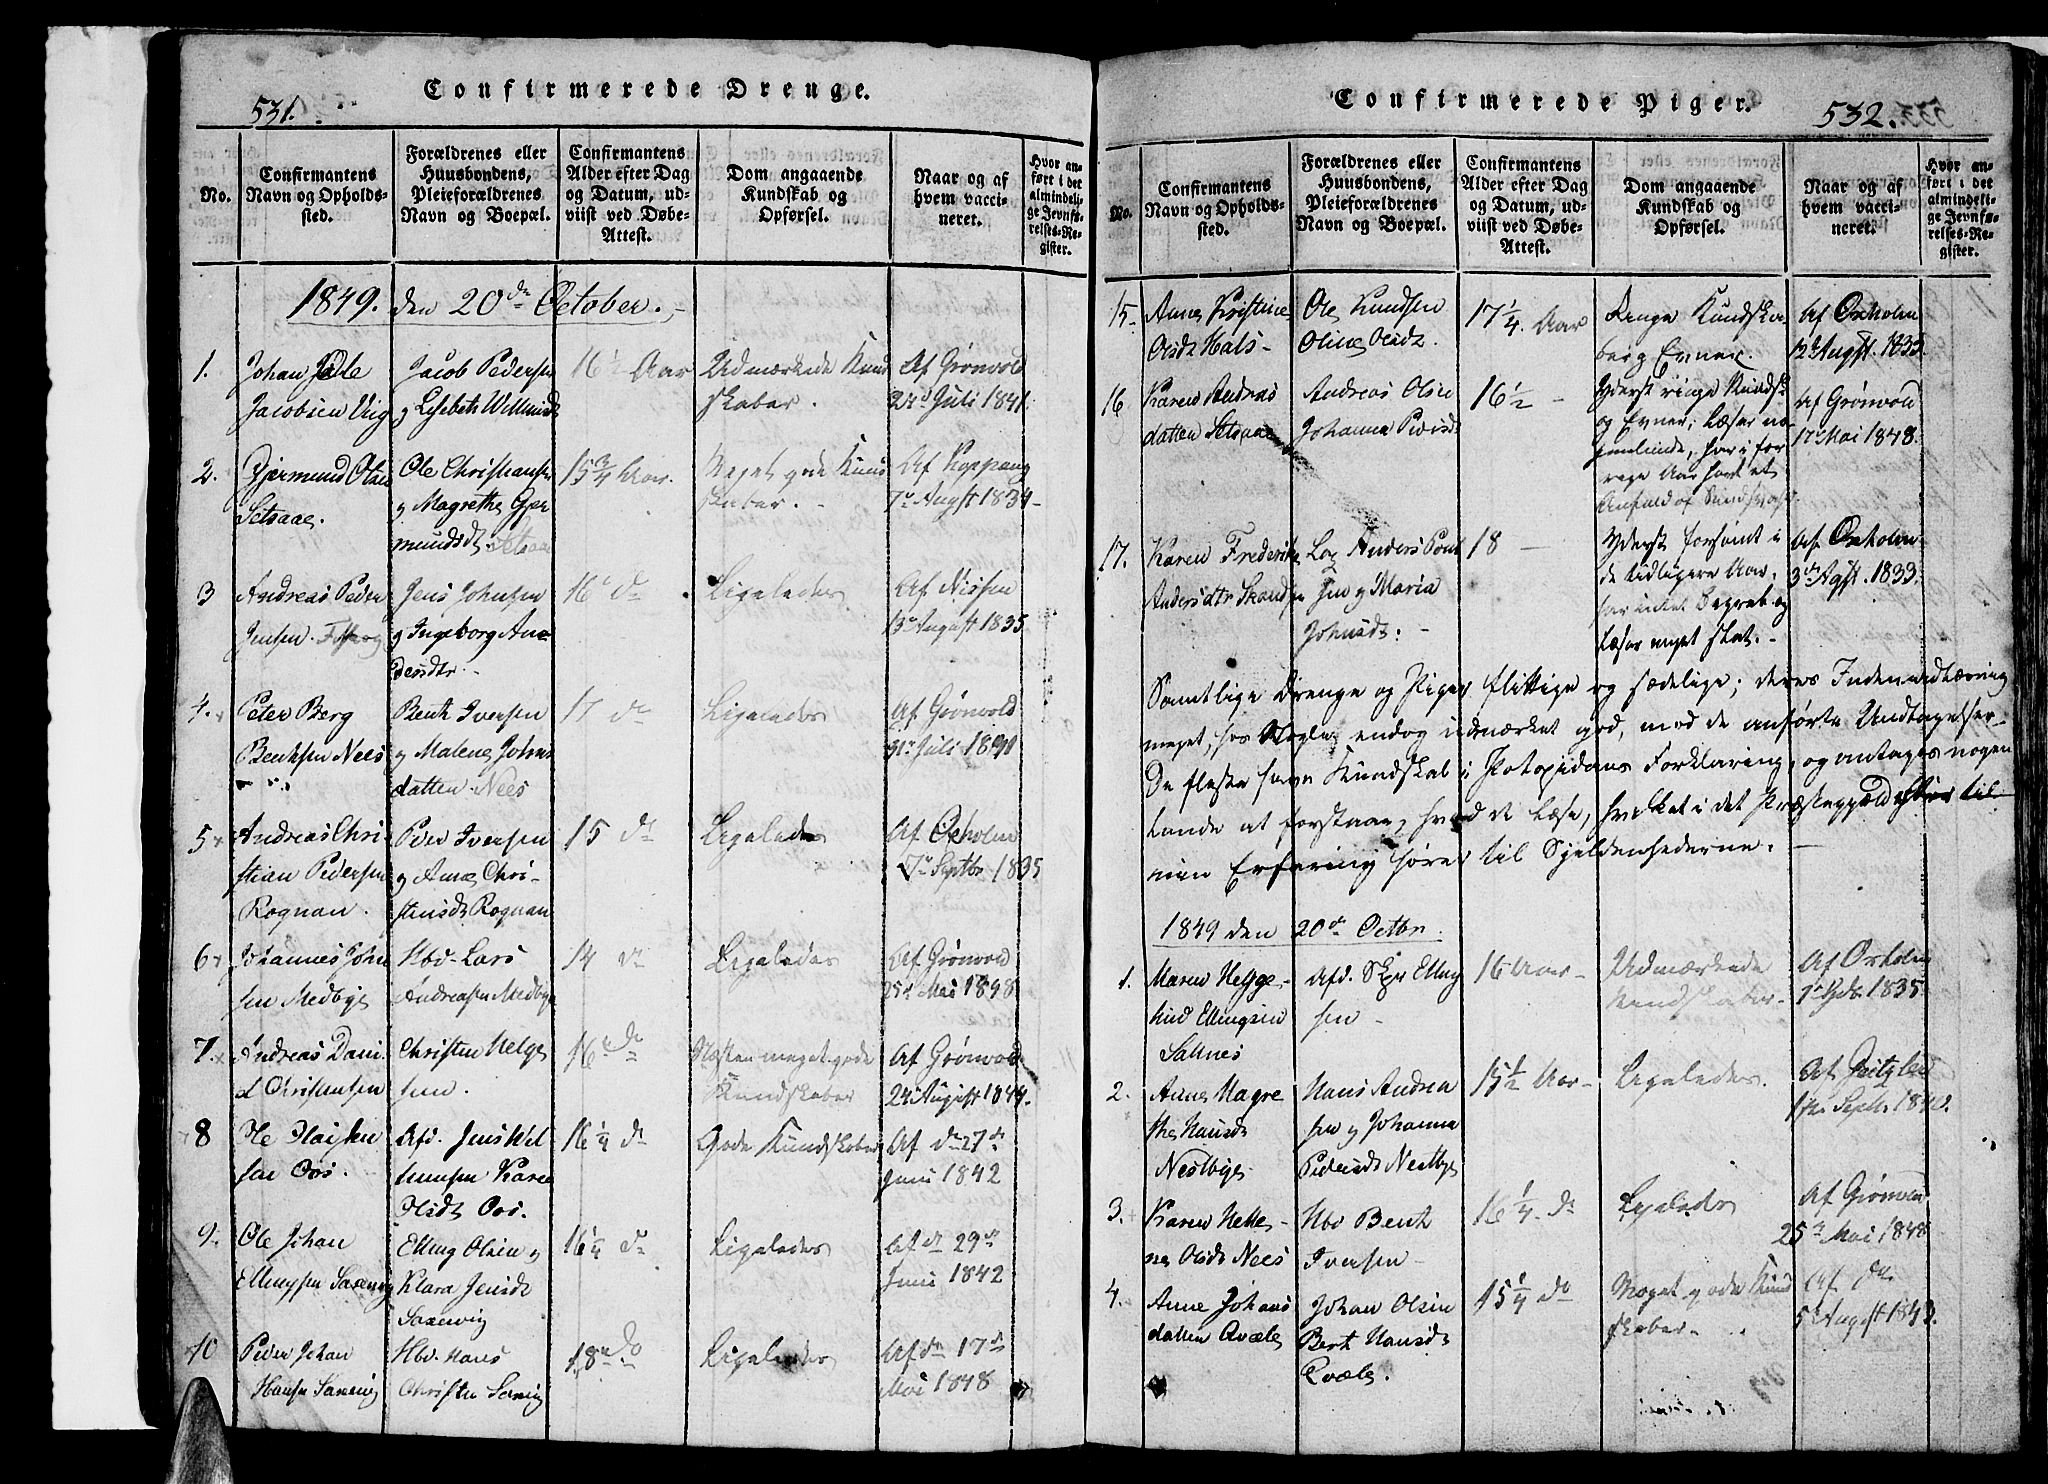 531.
Confirmerede Drenge.
No.
Confirmantens
Navn og Opholds-
sted.
Forældrenes eller
Huusbondens,
Pleieforældrenes
Navn og Boepæl.
Confirmantens
Alder efter Dag
og Datum, ud-
viist ved Døbe-
Attest.
Dom angaaende
Kundskab og
Opførsel.
Naar og af
hvem vacci-
neret.
Hvor an-
ført i det
almindeli-
ge Jevnfø-
relses-Re-
gister.
1849. den 20de October.
1.
Johan
Jacobsen
Jacob Pedersen
16½ Aar
Udmærkede Kund
skaber.
Af Grønvold
Juli 1841.
2.
Gjermund Olsen
Setsaae.
Ole Christiansen
g Magrethe Gjer
mundsdt. Setsaae
15¾ Aar.
Meget gode Kund
skaber.
Af Koppang
7de Augst 1834
3
Andreas Peder
Jensen.
Jens Johnsen
g Ingeborg An-
dersdtr.
16 do
Ligeledes
Af Nissen
13de August 1835
4.
Peter Berg
Bentsen Nees
Bent Iversen
g Malene Johns
datten Nees
17 do
Ligeledes
Af Grønvold
Juli 1840
5
Andreas Chri
stian Pedersen
Rognan.
Peder Iversen
g Anne Chri-
stensdt Rognan
15 do
Ligeledes
Af Oxholm
7de Septbr 1835
6
Johannes John
sen Medbye
Hbd. Lars
Andreasen Medbye
14 do
Ligeledes
Af Grønvold
25de Mai 1848
7.
Andreas Dani
el Christensen
Christen Helge
sen.
16 do
Næsten meget gode
Kundskaber
Af Grønvold
24 August 1844.
8
Ole
sen Oos.
Afd. Jens Wil
lumsen Karen
Olsdt Oos.
16¼ do
Gode Kundskaber
Af do 27de
Juni 1842
9.
Ole Johan
Ellingsen Saxenvig
Elling Olsen g
Klara Jensdt
Saxenvig
16¼ do
Ligeledes
Af do 29de
Juni 1842
10
Peder Johan
Hansen Saxenvig
Hbd. Hans
Christen
18 do
Ligeledes
Af do 17de
Mai 1848
Confirmerede Piger.
532.
No.
Confirmantens
Navn og Opholds-
sted.
Forældrenes eller
Huusbondens,
Pleieforældrenes
Navn og Boepæl.
Confirmantens
Alder efter Dag
og Datum, ud-
viist ved Døbe-
Attest.
Dom angaaende
Kundskab og
Opførsel.
Naar og af
hvem vacci-
neret.
Hvor an-
ført i det
almindeli-
ge Jevnfø-
relses-Re-
gister.
15.
Anne Kristine
Olsdt Hals-
Ole Knudsen
Oline Olsdt.
17¼. Aar
Ringe Kundska-
ber g Evner.
Af Oxholm
12de Augst. 1833.
16
Karen Andreas
datten Setsaae
Andreas Olsen
Johanna Pedersdt
16½ -
Yderst ringe Kundsk.
og Evner; Læser no-
genlunde, har i for
rige Aar havt et
Anfald af Sindssvag
Af Grønvold
17de Mai 1848.
17.
Karen Frederikke
Andersdtr
Anders Poul
sen g Maria
Johnsdt:
18 -
Yderst forsømt i
de tidligere Aar,
har intet Begreb og
Læser meget slet.
Af Oxholm
3de Agst. 1833.
Samtlige Drenge og Piger flittige og sædelige; deres Indenadlæsning
meget, hos Nogle endog udmærket god, med de anførte Undtagelser.
De fleste have Kundskab i Pontopidans Forklaring, og antages nogen
lunde at forstaae, hvad de læse, hvilket i det Præstegjeld efter
min Erfaring hører til Sjeldenhederne.
1849 den 20de Octbr.
1.
Maren
Ellingsen
Saltnes
Afd. Elling
sen
16 Aar
Udmærkede
Kundskaber.
Af Oxholm
1835.
2.
Anne Magre
the Hansdt
Nestbye
Hans Andrea
sen g Johanna
Pedersdt Nestbye
15½ Aar
Ligeledes.
Septr. 1840.
3.
Karen
Olsdt Nees
Hbd Bent
Iversen
16¼. do
Ligeledes
Af Grønvold
25de Mai 1848
4.
Anne Johans
datten Qvæle
Johan Olsen
Berit Hansdt
Qvæle.
15¼ do
Meget gode Kund
skaber.
Af do
5de August 1843.